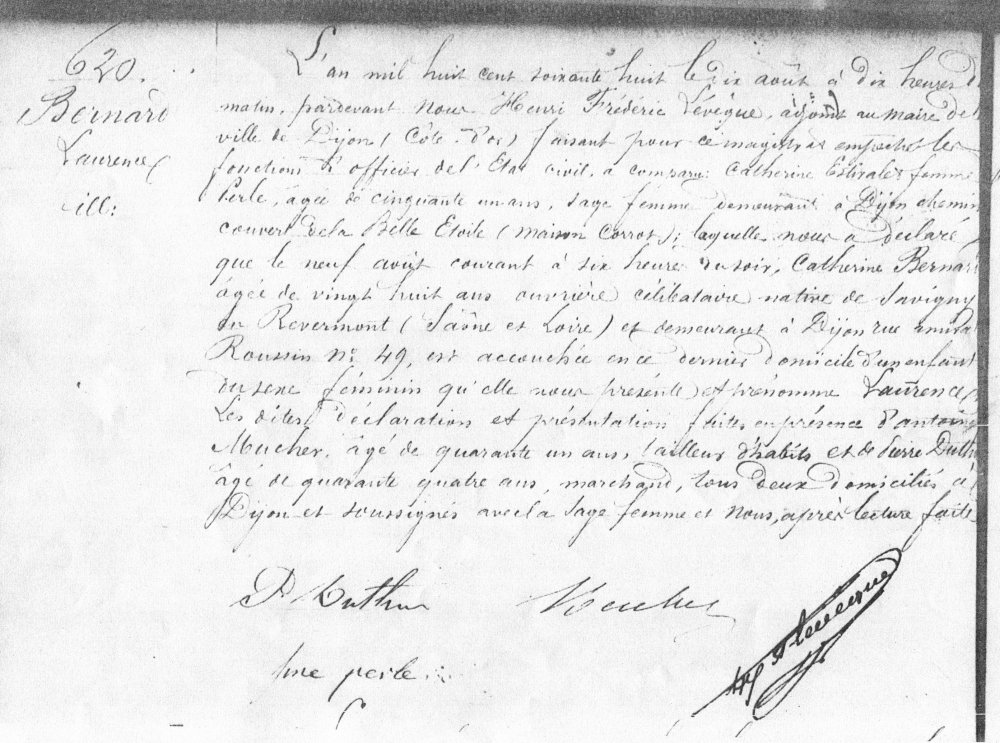 620.
Bernard
Laurence
ill:
L'an mil huit cent soixante huit le dix août à dix heures d
matin, pardevant nous Henri Frédéric Lévêque, adjoint au maire de
ville de Dijon (Côte d'or) faisant pour ce magistrat empêché les
fonctions d'officier de l'Etat civil, a comparu: Catherine femme
Perle, âgée de cinquante un ans, sage femme demeurant à Dijon chemin
couvert de la Belle Etoile (maison Corrot); laquelle nous a déclaré
que le neuf août courant à six heures du soir, Catherine Bernar
âgée de vingt huit ans ouvrière célibataire native de Savigny
en Revermont (Saône et Loire) et demeurant à Dijon rue amira
Roussin n° 49, est accouchée en ce dernier domicile d'un enfant
du sexe féminin qu'elle nous présente et prénomme Laurence
Les dites déclaration et présentation faites en présence d'antoin
Mucher, âgé de quarante un ans, tailleur d'habits et de Pierre Duth
âgé de quarante quatre ans, marchand, tous deux domiciliés à
Dijon et soussignés avec la sage femme et nous, après lecture faite
P Duthu
Mucher
fme perle